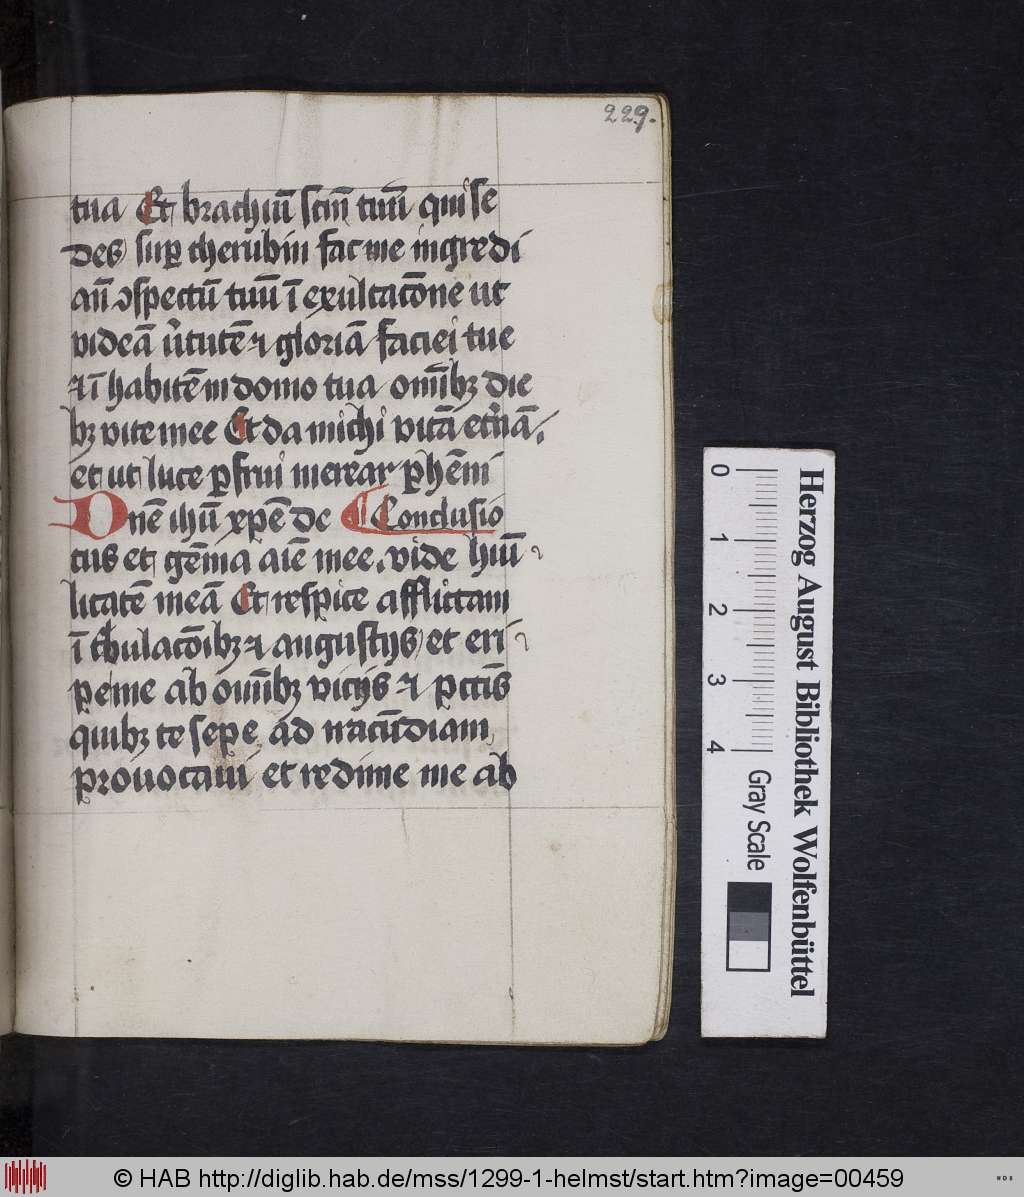 229.
tua Et brachiū scm̄ tuū qui se
des sup cherubin fac me ingredi
an̄ ↄspectū tuū ī exultacōne ut
videā v̓tutē ⁊ gloriā faciei tue
⁊ ī habitē in domo tua om̄ibꝫ die
bꝫ vite mee Et da michi vitā et̓nā.
et ut luce ꝑfrui merear ꝑhēni
Dnē ihū xpē de Conclusio
cus et gēma aīe mee. vide hiū
litatē meā Et respice afflictam
ī t̓bulacōibꝫ ⁊ angustijs et eri
ꝑe me ab om̄ibꝫ vicijs ⁊ pcc̄tis
quibꝫ te sepe ad iracūdiam
provocavi et redime me ab
0 1 2 3 4
Gray Scale
Herzog August Bibliothek Wolfenbüttel
© HAB http://diglib.hab.de/mss/1299-1-helmst/start.htm?image=00459